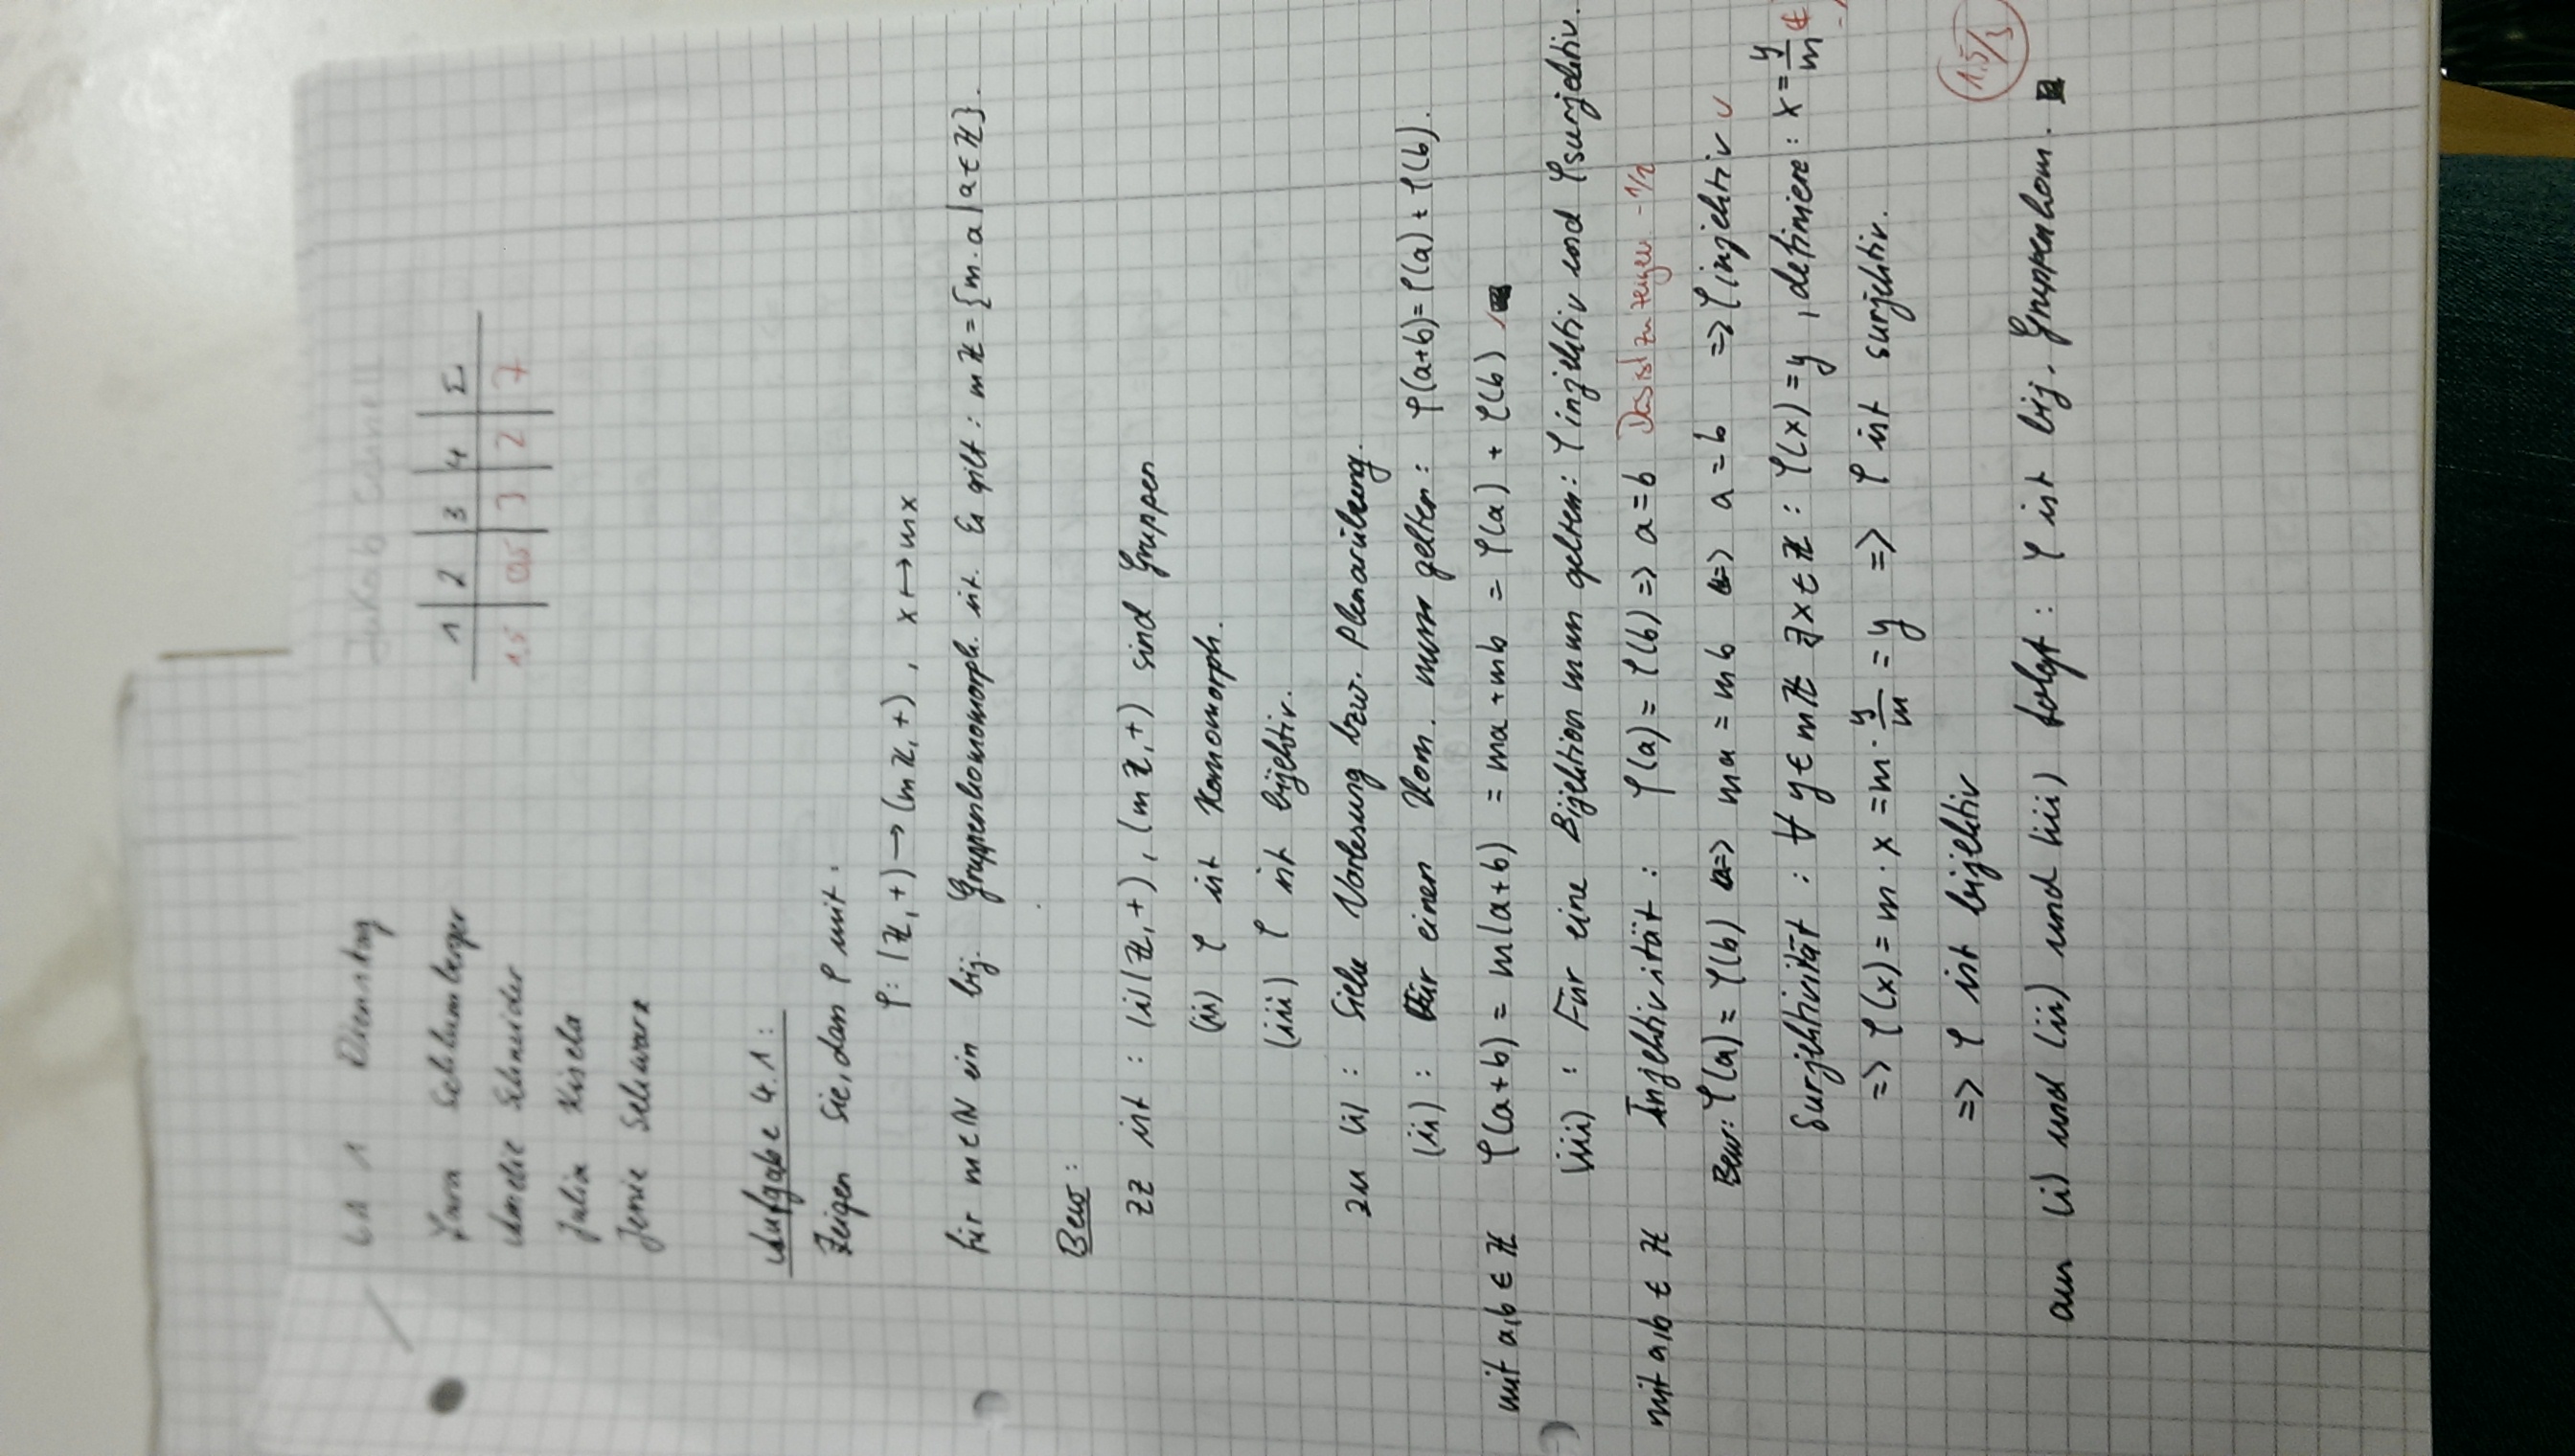 LA 1 Dienstag
Jakob Connell
Lara Schlumberger
Amelie Schneider
Julia Kisela
Jenie Schwarz
1 | 2 | 3 | 4 | Σ
1,5 | 0,5 | 3 | 2 | 7
Aufgabe 4.1:
Zeigen Sie, dass φ mit:
φ: (ℤ,+) → (mℤ,+), x ↦ mx
für m∈ℕ ein bij. Gruppenhomomorph. ist. Es gilt: mℤ = {m·a | a∈ℤ}.
Bew:
ZZ ist: (i) (ℤ,+), (mℤ,+) sind Gruppen
(ii) φ ist Homomorph.
(iii) φ ist bijektiv.
zu (i): Siehe Vorlesung bzw. Plenarübung.
(ii): Für einen Hom. muss gelten: φ(a+b) = φ(a) + φ(b).
mit a,b ∈ ℤ φ(a+b) = m(a+b) = ma + mb = φ(a) + φ(b) ✓ ■
(iii): Für eine Bijektion muss gelten: φ injektiv und φ surjektiv.
mit a,b ∈ ℤ Injektivität: φ(a) = φ(b) => a = b Das ist zu zeigen -1/2
Bew: φ(a) = φ(b) => ma = mb => a = b => φ injektiv ✓
Surjektivität: ∀ y∈mℤ ∃x∈ℤ: φ(x) = y, definiere: x = y/m
=> φ(x) = m·x = m·y/m = y => φ ist surjektiv.
=> φ ist bijektiv
1.5/3
aus (i) und (ii) und (iii) folgt: φ ist bij. Gruppenhom. ■